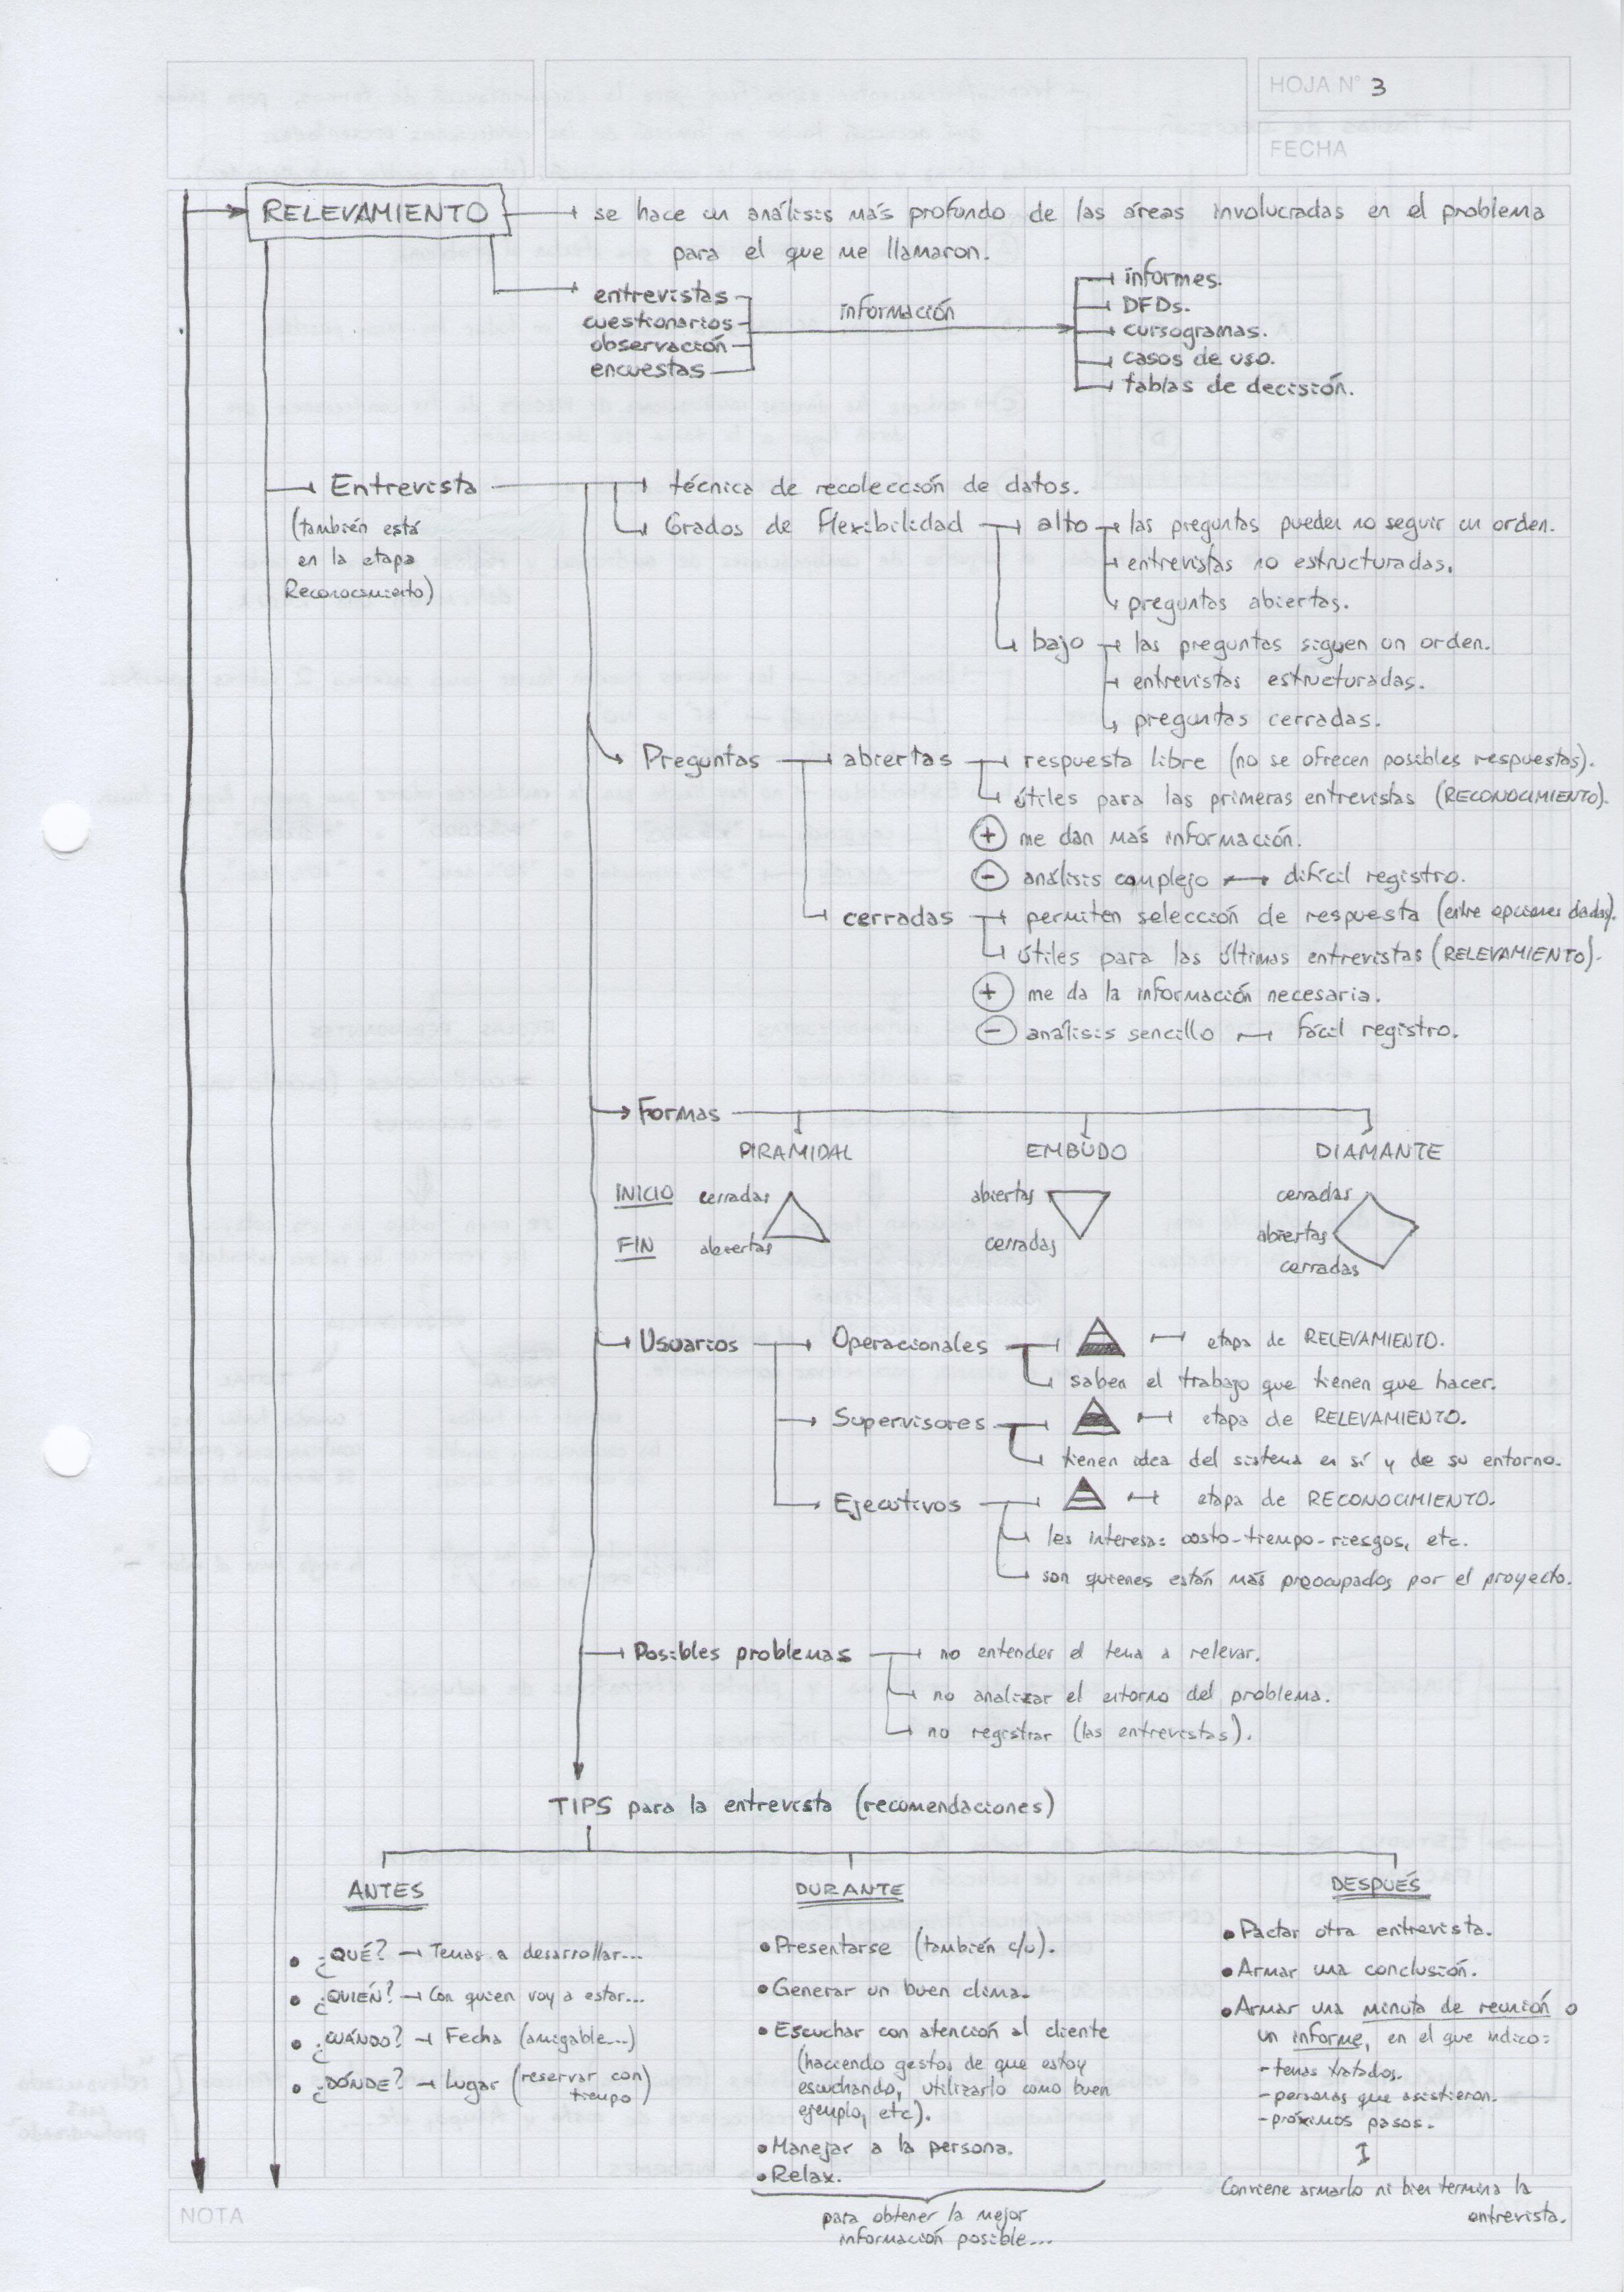 HOJA N° 3
FECHA
RELEVAMIENTO → se hace un análisis más profundo de las áreas involucradas en el problema
para el que me llamaron.
entrevistas
cuestionarios
observación
encuestas
información
informes.
DFDs.
cursogramas.
casos de uso.
tablas de decisión.
Entrevista
(también está
en la etapa
Reconocimiento)
técnica de recolección de datos.
Grados de Flexibilidad → alto → las preguntas pueden no seguir un orden.
entrevistas no estructuradas.
preguntas abiertas.
bajo → las preguntas siguen un orden.
entrevistas estructuradas.
preguntas cerradas.
Preguntas → abiertas → respuesta libre (no se ofrecen posibles respuestas).
útiles para las primeras entrevistas (RECONOCIMIENTO).
+ me dan más información.
- análisis complejo → difícil registro.
cerradas → permiten selección de respuesta (entre opciones dadas).
útiles para las últimas entrevistas (RELEVAMIENTO).
+ me da la información necesaria.
- análisis sencillo → fácil registro.
Formas
PIRAMIDAL EMBUDO DIAMANTE
INICIO cerradas abiertas cerradas
abiertas
FIN abiertas cerradas cerradas
Usuarios → Operacionales → etapa de RELEVAMIENTO.
saben el trabajo que tienen que hacer.
Supervisores → etapa de RELEVAMIENTO.
tienen idea del sistema en sí y de su entorno.
Ejecutivos → etapa de RECONOCIMIENTO.
les interesa: costo-tiempo-riesgos, etc.
son quienes están más preocupados por el proyecto.
Posibles problemas → no entender el tema a relevar.
no analizar el entorno del problema.
no registrar (las entrevistas).
TIPS para la entrevista (recomendaciones)
ANTES
• ¿QUÉ? → Temas a desarrollar...
• ¿QUIÉN? → Con quien voy a estar...
• ¿CUÁNDO? → Fecha (amigable...)
• ¿DÓNDE? → Lugar (reservar con
tiempo)
DURANTE
• Presentarse (también c/u).
• Generar un buen clima.
• Escuchar con atención al cliente
(haciendo gestos de que estoy
escuchando, utilizarlo como buen
ejemplo, etc).
• Manejar a la persona.
• Relax.
para obtener la mejor
información posible...
DESPUÉS
• Pactar otra entrevista.
• Armar una conclusión.
• Armar una minuta de reunión o
un informe, en el que indico:
- temas tratados.
- personas que asistieron.
- próximos pasos.
Conviene armarlo ni bien termina la
entrevista.
NOTA